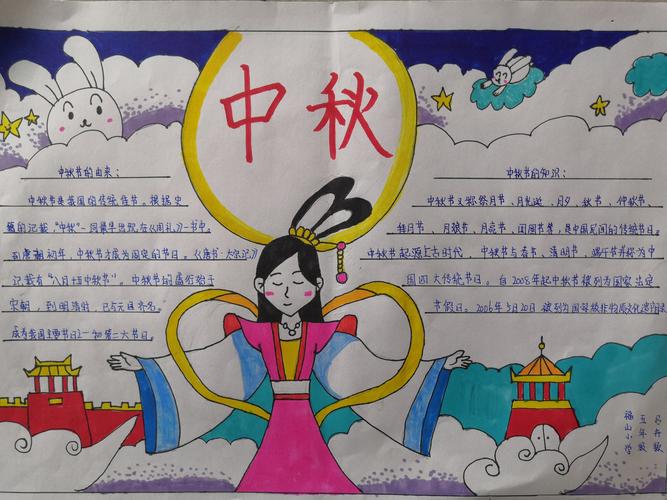 中秋
中秋节的由来：
中秋节是我国的传统佳节。根据史
籍的记载，“中秋”一词最早出现在《周礼》一书中。
到唐朝初年，中秋节才成为固定的节日。《唐书·太宗记》
记载有“八月十五中秋节”。中秋节的盛行始于
宋朝，到明清时，已与元旦齐名，
成为我国主要节日之一和第二大节日。
中秋节的知识：
中秋节又称祭月节、月光诞、月夕、秋节、仲秋节、
拜月节、月娘节、月亮节、团圆节等，是中国民间的传统节日。
中秋节起源上古时代，中秋节与春节、清明节、端午节并称为中
国四大传统节日。自2008年起中秋节被列为国家法定
节假日。2006年5月20日被列为国家级非物质文化遗产
五年级
福山小学